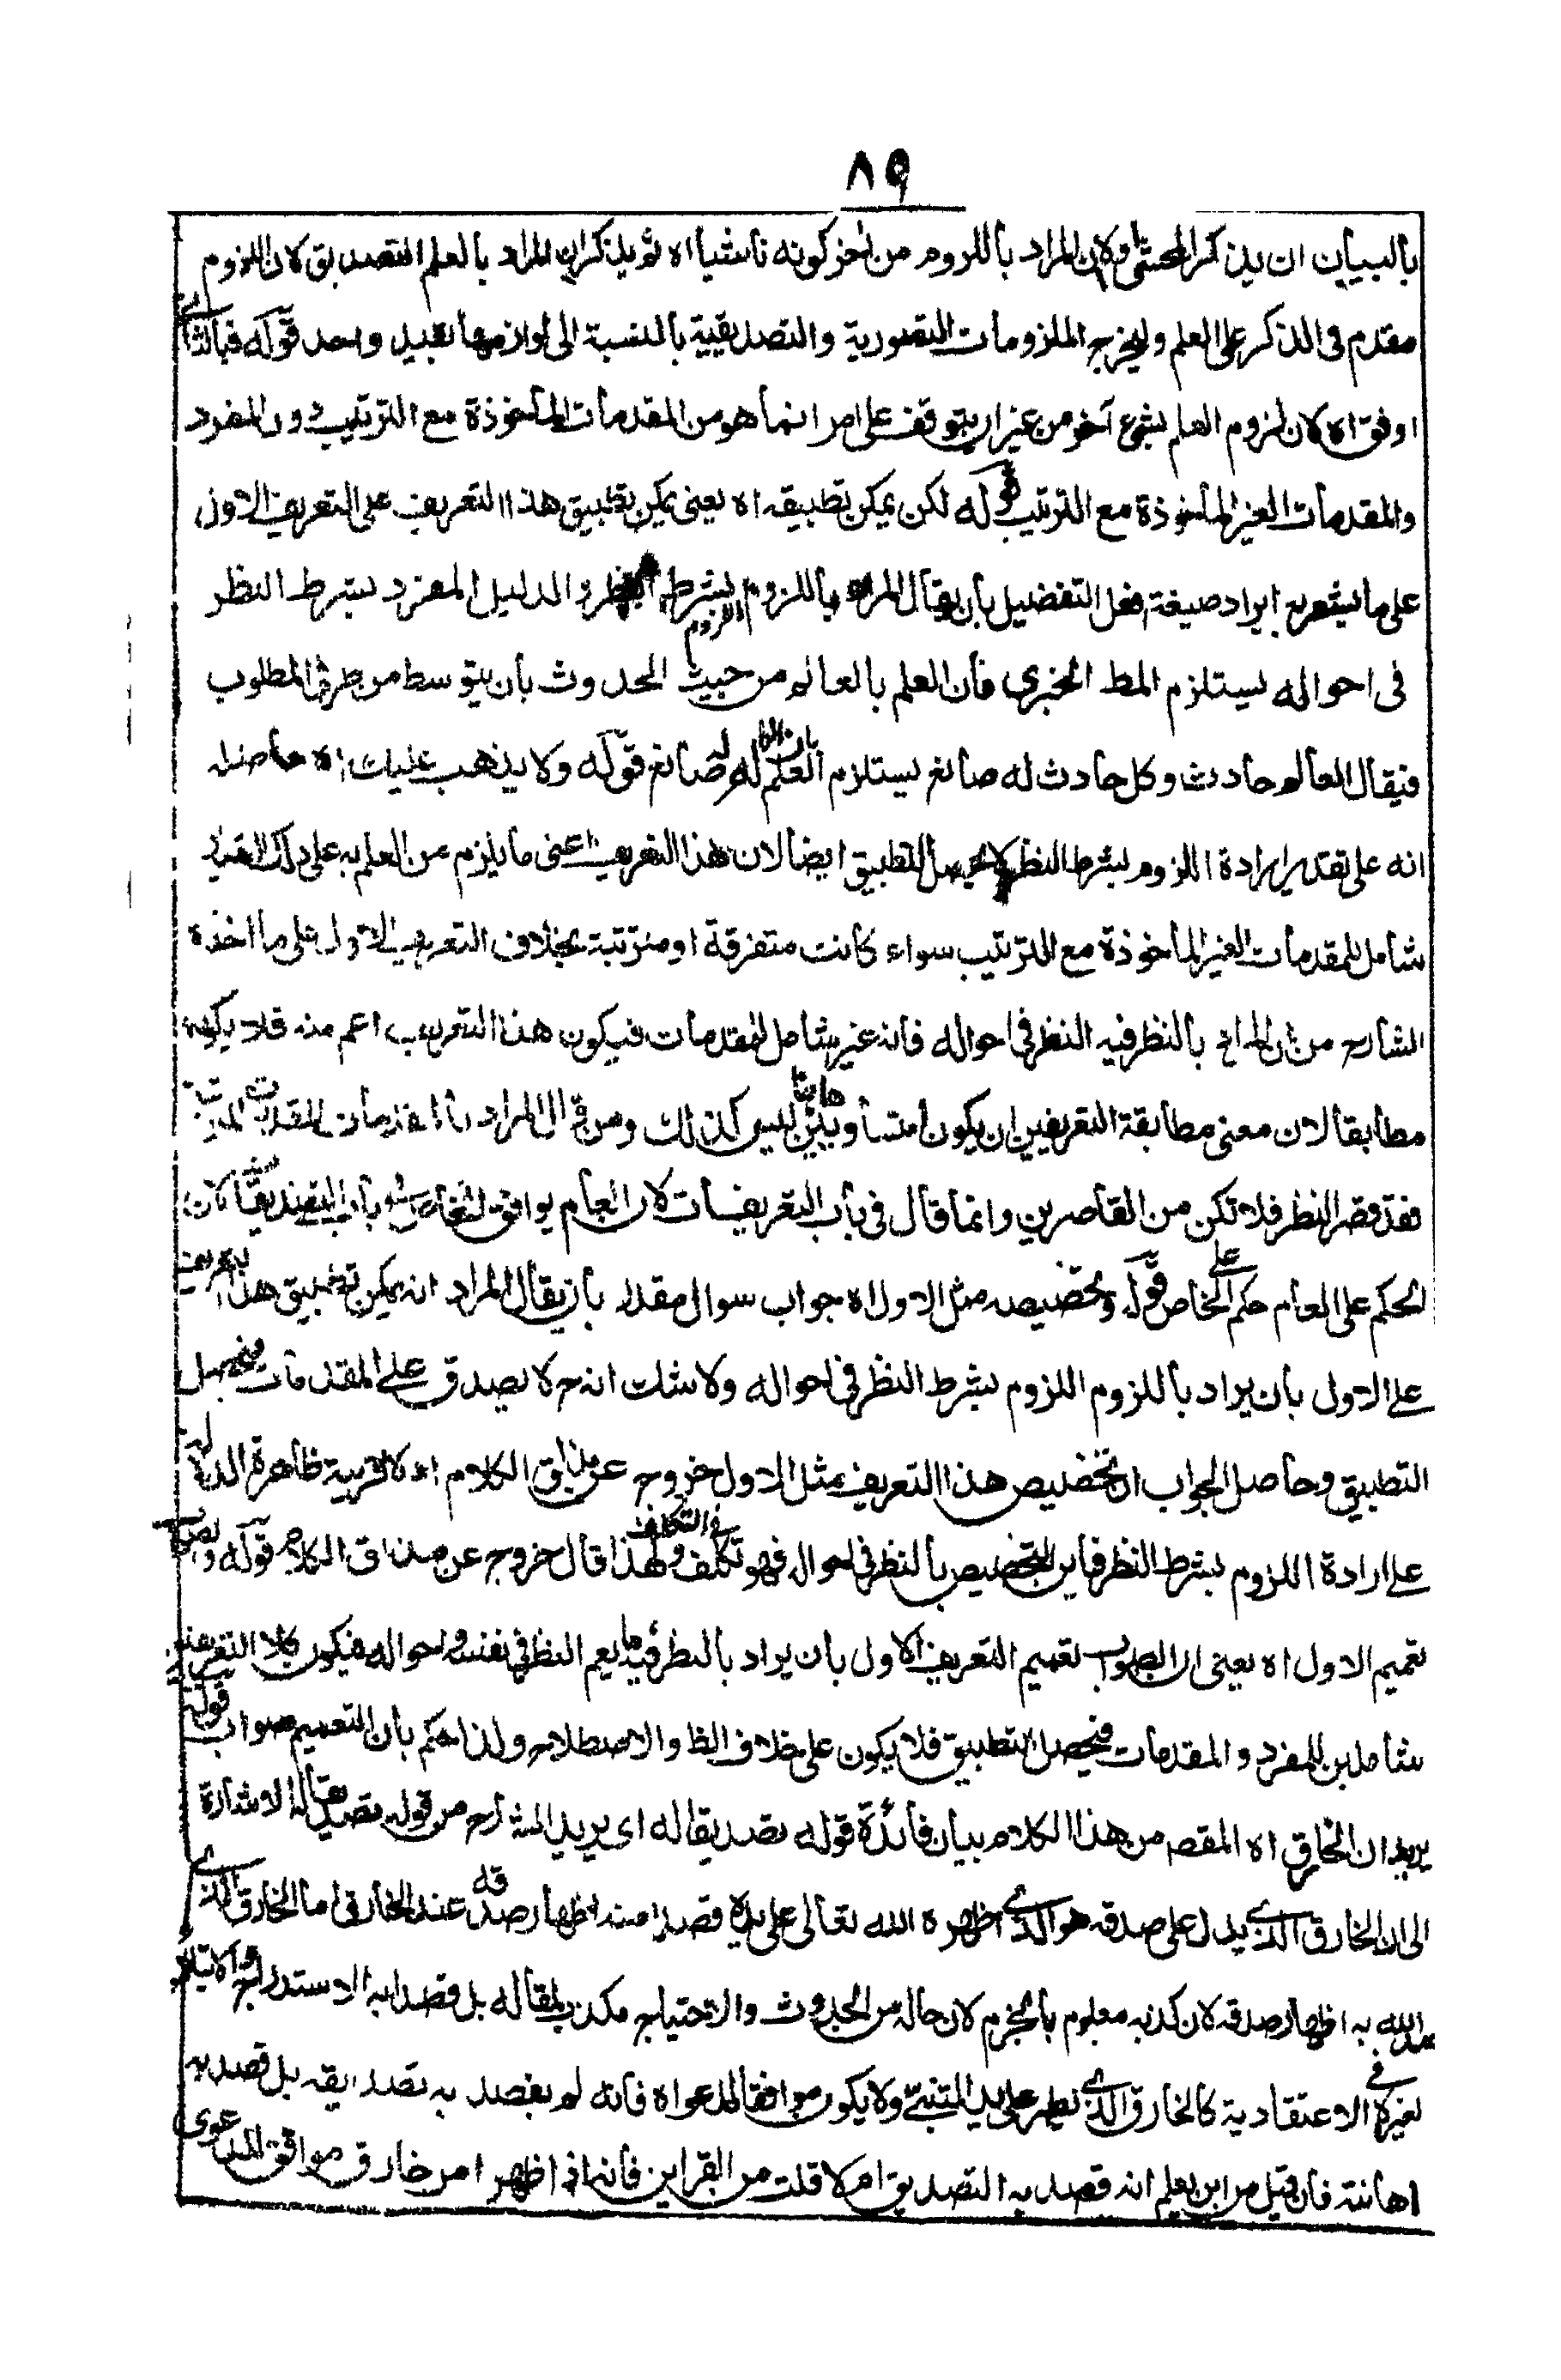 ٨٩
بالبيان ان يذكر المحشى اولا ان المراد باللزوم من اخر كونه ناشيا اه ثم يذكر ان المراد بالعلم التصديق لان اللزوم
مقدم فى الذكر على العلم وليخرج الملزومات التصورية والتصديقية بالنسبة الى لوازمها بقيد واحد قوله فبالثانى
اوفق اه لان لزوم العلم بشئ آخر من غير ان يتوقف على امر انما هو من المقدمات المأخوذة مع الترتيب دون المفرد
والمقدمات الغير المأخوذة مع الترتيب قوله لكن يمكن تطبيقه اه يعنى يمكن تطبيق هذا التعريف على التعريف الاول
على ما يشعر به ايراد صيغة افعل التفضيل بأن يقال المراد باللزوم اللزوم بشرط النظر و الدليل المفرد بشرط النظر
فى احواله يستلزم المط الخبرى فأن العلم بالعالم من حيث الحدوث بأن يتوسط من طرفى المطلوب
فيقال العالم حادث وكل حادث له صانع يستلزم العلم بان العالم له صانع قوله ولا يذهب عليك اه حاصله
انه على تقدير ارادة اللزوم بشرط النظر لا يحصل التطبيق ايضا لان هذا التعريف اعنى ما يلزم من العلم به على ذلك التقدير
شامل للمقدمات الغير المأخوذة مع الترتيب سواء كانت متفرقة او مترتبة بخلاف التعريف الاول على ما اخذه
الشارح من ان المراد بالنظر فيه النظر فى احواله فانه غير شامل للمقدمات فيكون هذا التعريف اعم منه فلا يكون
مطابقا لان معنى مطابقة التعريفين ان يكونا متساويين وهاهنا ليس كذلك ومن قال المراد بالمقدمات المقدمات المرتبة
فقد قصر النظر فلا تكن من القاصرين وانما قال فى باب التعريفات لان العام يوافق الخاص فى باب التصديقات لان
الحكم على العام حكم على الخاص قوله وتخصيصه مثل الاول اه جواب سوال مقدر بأن يقال المراد انه يمكن تطبيق هذا التعريف
على الاول بأن يراد باللزوم اللزوم بشرط النظر فى احواله ولا شك انه ح لا يصدق على المقدمات فيحصل
التطبيق وحاصل الجواب ان تخصيص هذا التعريف مثل الاول خروج عن مذاق الكلام اذ لا قرينة ظاهرة الدلالة
على ارادة اللزوم بشرط النظر فأين التخصيص بالنظر فى احواله فهو تكلف فى التكلف ولهذا قال خروج عن مذاق الكلام قوله والصواب
تعميم الاول اه يعنى ان الصواب تعميم التعريف الاول بان يراد بالنظر فيه ما يعم النظر فى نفسه واحواله فيكون كلا التعريفين
شاملين للمفرد والمقدمات فيحصل التطبيق فلا يكون على خلاف الظ والاصطلاح ولذا حكم بان التعميم صواب قوله
يريد ان الخارق اه المقصد من هذا الكلام بيان فائدة قوله تصديقا له اى يريد الشارح من قوله تصديقا له الاشارة
الى ان الخارق الذى يدل على صدقه هو الذى اظهره الله تعالى على يده قصدا منه اظهار صدقه عند الخارق اما الخارق الذى
به اظهار صدقه لان كذبه معلوم بالجزم لان حاله من الحدوث والاحتياج مكذب لمقاله بل قصد به الاستدراج والابتلاء
لغيره فى الاعتقادية كالخارق الذى يظهر على يد المتنبى ولا يكون موافقا لدعواه فانه لم يقصد به تصديقه بل قصد به
اهانته فأن قيل من اين يعلم انه قصد به التصديق ام لا قلت من القراين فأنه اذا ظهر امر خارق موافق للدعوى